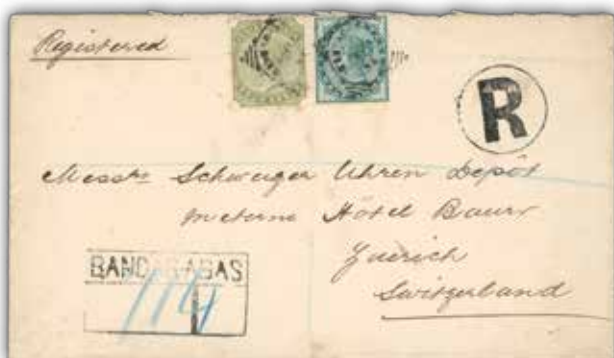 Registered
R
Messrs Schweizer Uhren Depôt
Hôtel Baur
Zuerich
Switzerland
BANDAR ABAS
114